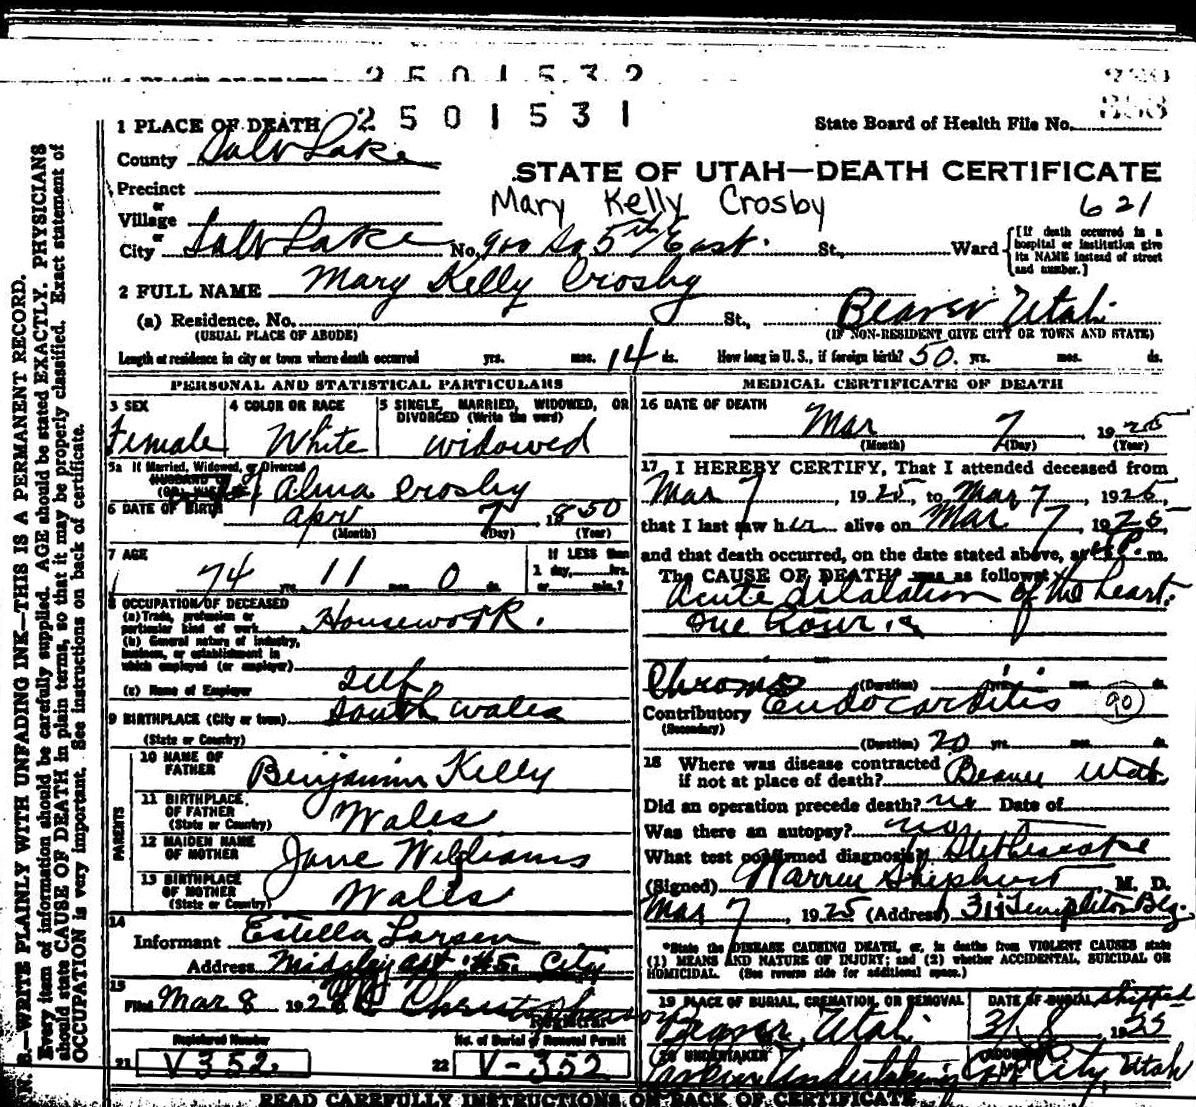 2 5 0 1 5 3 2
1 PLACE OF DEATH 2 5 0 1 5 3 1
State Board of Health File No.
County Salt Lake
STATE OF UTAH—DEATH CERTIFICATE
Precinct
or
Mary Kelly Crosby 621
Village
or
City Salt Lake No. 900 So 5th East. St., Ward
[If death occurred in a hospital or institution give its NAME instead of street and number.]
2 FULL NAME Mary Kelly Crosby
(a) Residence. No. St., Beaver Utah
(USUAL PLACE OF ABODE) (IF NON-RESIDENT GIVE CITY OR TOWN AND STATE)
Length of residence in city or town where death occurred yrs. mos. 14 ds. How long in U. S., if foreign birth? 50. yrs. mos. ds.
PERSONAL AND STATISTICAL PARTICULARS
3 SEX
Female
4 COLOR OR RACE
White
5 SINGLE, MARRIED, WIDOWED, OR DIVORCED (Write the word)
widowed
5a If Married, Widowed, or Divorced
HUSBAND of
Alma Crosby
6 DATE OF BIRTH Apr 7, 1850
(Month) (Day) (Year)
7 AGE
74 yrs. 11 mos. 0 ds.
If LESS than
1 day, hrs.
or min.?
8 OCCUPATION OF DECEASED
(a) Trade, profession or
particular kind of work Housework.
(b) General nature of industry,
business, or establishment in
which employed (or employer)
(c) Name of Employer self.
9 BIRTHPLACE (City or town) South Wales
(State or Country)
PARENTS
10 NAME OF FATHER Benjamin Kelly
11 BIRTHPLACE OF FATHER (State or Country) Wales
12 MAIDEN NAME OF MOTHER Jane Williams
13 BIRTHPLACE OF MOTHER (State or Country) Wales
14
Informant Estella Larsen
Address Midgley apt #5. City
15
Filed Mar 8 192
Registrar
Registered Number
21 V 352.
No. of Burial or Removal Permit
22 V-352
MEDICAL CERTIFICATE OF DEATH
16 DATE OF DEATH
Mar 7, 1925
(Month) (Day) (Year)
17 I HEREBY CERTIFY, That I attended deceased from
Mar 7, 1925, to Mar 7, 1925,
that I last saw her alive on Mar 7, 1925
and that death occurred, on the date stated above, at P. m.
The CAUSE OF DEATH* was as follows:
Acute dilatation of the heart.
One hour.
Chronic (Duration) yrs. mos. ds.
Contributory Endocarditis 90
(Secondary)
(Duration) 20 yrs. mos. ds.
18 Where was disease contracted
if not at place of death? Beaver Utah
Did an operation precede death? no Date of
Was there an autopsy? no
What test confirmed diagnosis? Stethescope
(Signed) Warren Shepherd, M. D.
Mar 7, 1925 (Address) 311 Templeton Blg.
*State the DISEASE CAUSING DEATH, or, in deaths from VIOLENT CAUSES state
(1) MEANS AND NATURE OF INJURY; and (2) whether ACCIDENTAL, SUICIDAL OR
HOMICIDAL. (See reverse side for additional space.)
19 PLACE OF BURIAL, CREMATION, OR REMOVAL
Beaver, Utah
DATE OF BURIAL shipped
3/8 1925
20 UNDERTAKER
Undertaking
ADDRESS
City, Utah
READ CAREFULLY INSTRUCTIONS ON BACK OF CERTIFICATE
N. B.—WRITE PLAINLY WITH UNFADING INK—THIS IS A PERMANENT RECORD.
Every item of information should be carefully supplied. AGE should be stated EXACTLY. PHYSICIANS
should state CAUSE OF DEATH in plain terms, so that it may be properly classified. Exact statement of
OCCUPATION is very important. See instructions on back of certificate.